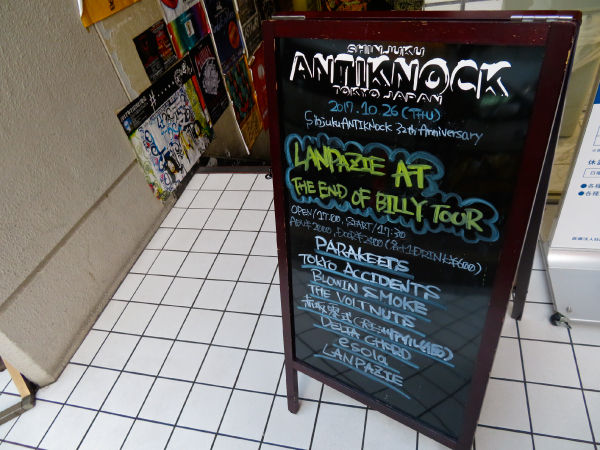 SHINJUKU
ANTIKNOCK
TOKYO JAPAN
2017.10.26 (THU)
Shinjuku ANTIKNOCK 32th Anniversary
LANPAZIE AT
THE END OF BILLY TOUR
OPEN/17:00, START/17:30
PARAKEETS
TOKYO ACCIDENTS
BLOWIN SMOKE
THE VOTNUTS
DELTA CHERD
esola
LANPAZIE